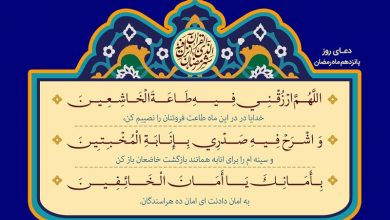 دعای روز
پانزدهم ماه رمضان
اللَّهُمَّ ارْزُقْنِي فِيهِ طَاعَةَ الْخَاشِعِينَ
خدایا در در این ماه طاعت فروتنان را نصیبم کن،
وَ اشْرَحْ فِيهِ صَدْرِي بِإِنَابَةِ الْمُخْبِتِينَ
و سینه ام را برای انابه همانند بازگشت خاضعان باز کن
بِأَمَانِكَ يَا أَمَانَ الْخَائِفِينَ
به امان دادنت ای امان ده هراسندگان.